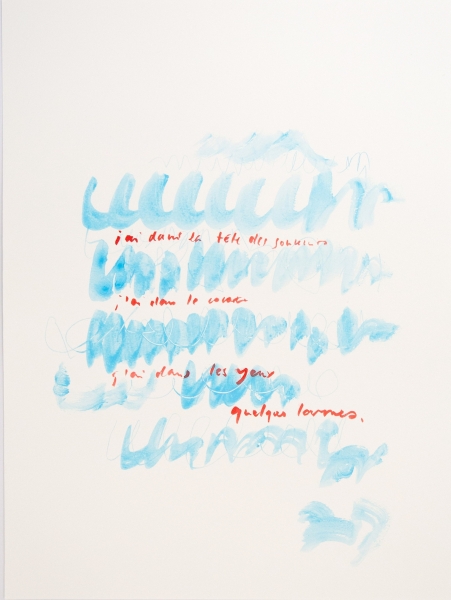 j'ai dans la tête des
j'ai dans le
j'ai dans les yeux
quelques larmes.